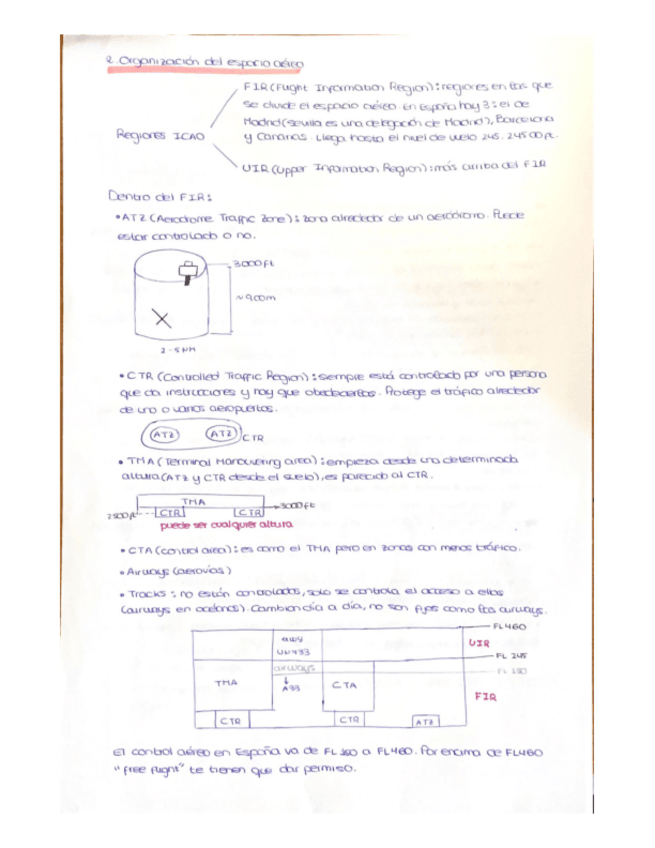 2. Organización del espacio aéreo
FIR (Flight Information Region): regiones en las que
se divide el espacio aéreo. En España hay 3: el de
Madrid (Sevilla es una delegación de Madrid), Barcelona
Regiones ICAO
y Canarias. Llega hasta el nivel de vuelo 245. 24500 ft.
UIR (Upper Information Region): más arriba del FIR
Dentro del FIR:
• ATZ (Aerodrome Traffic Zone): zona alrededor de un aeródromo. Puede
estar controlado o no.
3000 ft
~900m
2-5 NM
• CTR (Controlled Traffic Region): siempre está controlado por una persona
que da instrucciones y hay que obedecerlas. Protege el tráfico alrededor
de uno o varios aeropuertos.
ATZ ATZ CTR
• TMA (Terminal Manouvering area): empieza desde una determinada
altura (ATZ y CTR desde el suelo), es parecido al CTR.
TMA
3000 ft
2500 ft CTR CTR
puede ser cualquier altura
• CTA (control area): es como el TMA pero en zonas con menos tráfico.
• Airways (aerovías)
• Tracks: no están controlados, solo se controla el acceso a ellos
(airways en océanos). Cambian día a día, no son fijos como las airways.
FL460
awy
UIR
UN433
FL 245
airways
TMA
A33
CTA
FIR
CTR CTR ATZ
El control aéreo en España va de FL a FL460. Por encima de FL460
"free flight" te tienen que dar permiso.